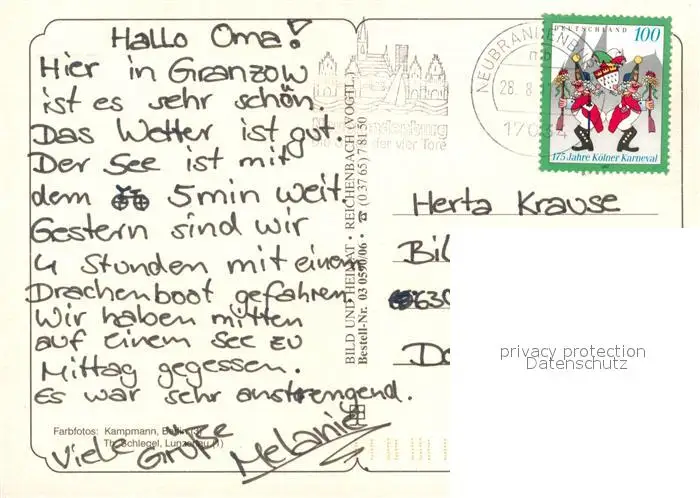 Hallo Oma!
Hier in Granzow
ist es sehr schön.
Das Wetter ist gut.
Der See ist mit
dem 5min weit.
Gestern sind wir
4 Stunden mit einem
Drachenboot gefahren.
Wir haben mitten
auf einem See zu
Mittag gegessen.
Es war sehr anstrengend.
Viele Grüße
Melanie
Farbfotos: Kampmann, Berlin
Th. Schlegel, Lunzenau (1)
BILD UND HEIMAT · REICHENBACH (VOGTL.)
Bestell-Nr. 03 0590/06 · ☎ (0 37 65) 7 81 50
der vier Tore
NEUBRANDENB
28. 8.
17034
DEUTSCHLAND 100
175 Jahre Kölner Karneval
Herta Krause
Bil
630
Do
privacy protection
Datenschutz